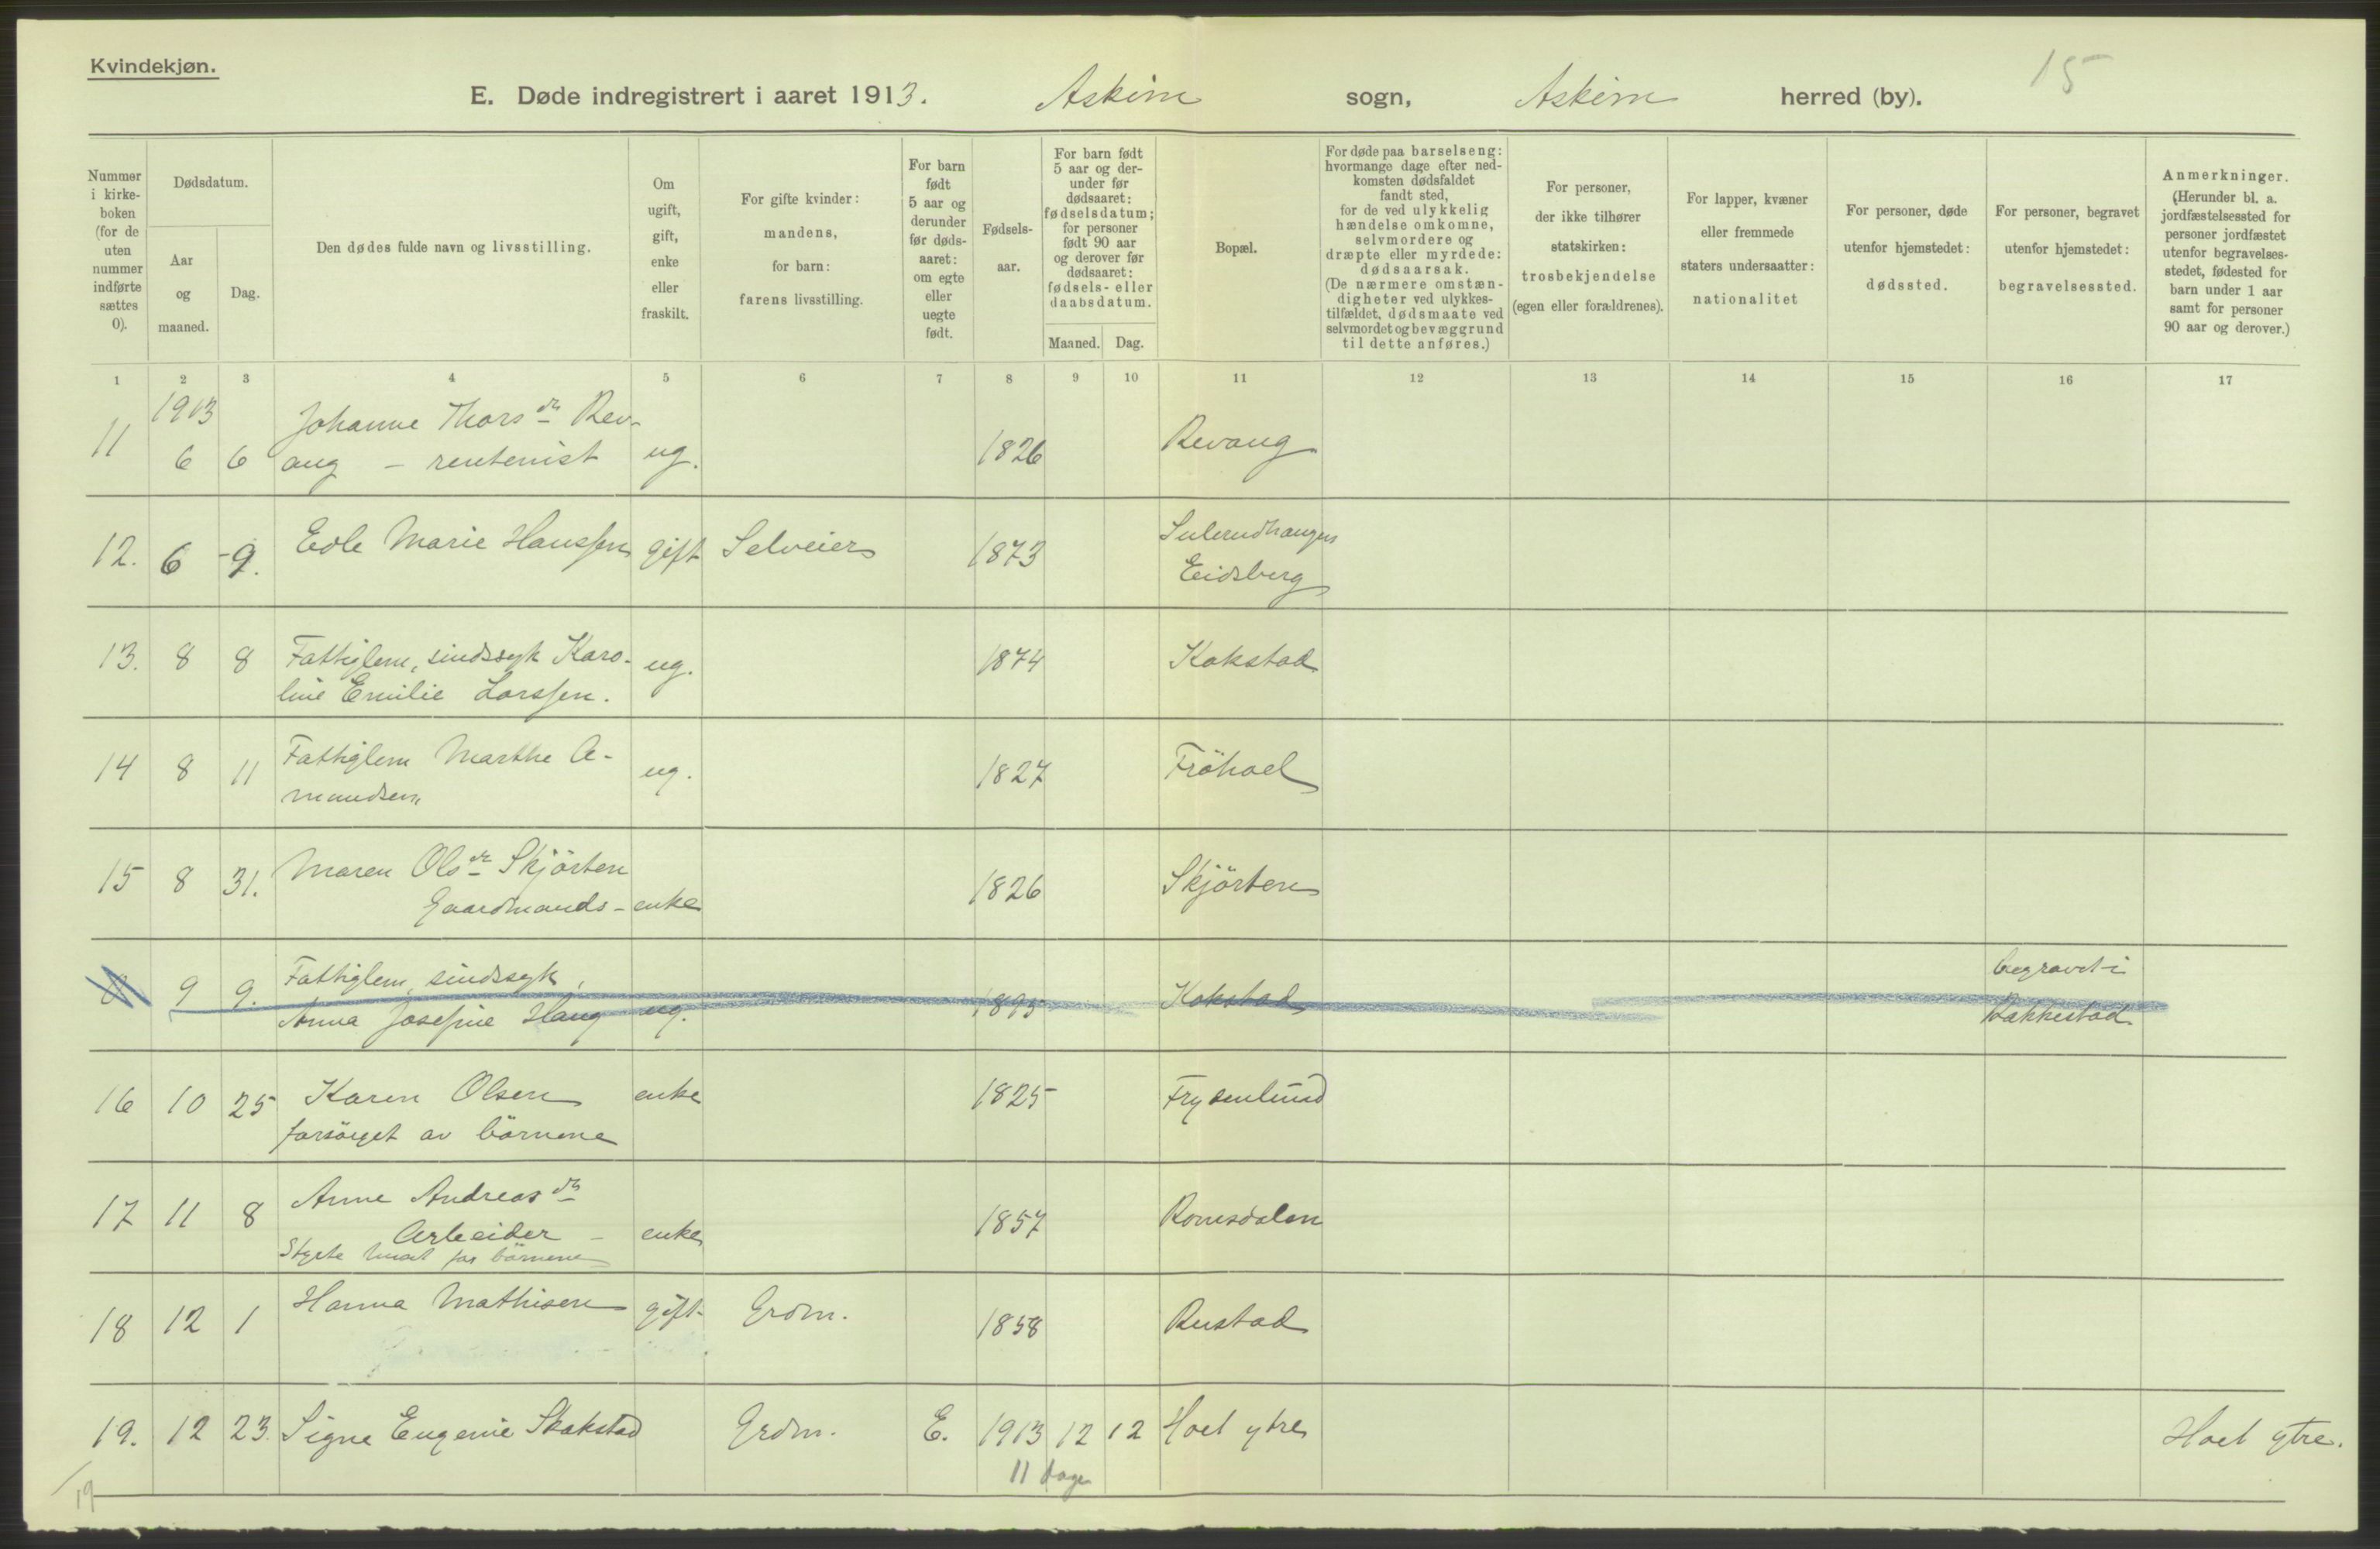 Kvindekjøn.
15
E. Døde indregistrert i aaret 1913. Askim sogn, Askim herred (by).
Nummer i kirke-boken (for de uten nummer indførte sættes 0).
Dødsdatum.
Aar og maaned.
Dag.
Den dødes fulde navn og livsstilling.
Om ugift, gift, enke eller fraskilt.
For gifte kvinder: mandens, for barn: farens livsstilling.
For barn født 5 aar og derunder før døds-aaret: om egte eller uegte født.
Fødsels-aar.
For barn født 5 aar og der-under før dødsaaret: fødselsdatum; for personer født 90 aar og derover før dødsaaret: fødsels- eller daabsdatum.
Maaned. Dag.
Bopæl.
For døde paa barselseng: hvormange dage efter ned-komsten dødsfaldet fandt sted, for de ved ulykkelig hændelse omkomne, selvmordere og dræpte eller myrdede: dødsaarsak. (De nærmere omstæn-digheter ved ulykkes-tilfældet, dødsmaate ved selvmordet og bevæggrund til dette anføres.)
For personer, der ikke tilhører statskirken: trosbekjendelse (egen eller forældrenes).
For lapper, kvæner eller fremmede staters undersaatter: nationalitet
For personer, døde utenfor hjemstedet: dødssted.
For personer, begravet utenfor hjemstedet: begravelsessted.
Anmerkninger. (Herunder bl. a. jordfæstelsessted for personer jordfæstet utenfor begravelses-stedet, fødested for barn under 1 aar samt for personer 90 aar og derover.)
1 2 3 4 5 6 7 8 9 10 11 12 13 14 15 16 17
1913 Johanne Thorsdr Rev-
11 6 6 aug – rentenist ug. 1826 Revaug
12. 6 -9. Edle Marie Hanssen gift Selveier 1873 Sulerudhaugen
Eidsberg
13. 8 8 Fattiglem, sindssyk Karo- ug. 1874 Kakstad
line Emilie Larssen.
14 8 11 Fattiglem Marthe A- ug. 1827 Fröhoel
mundsen
15 8 31. Maren Olsdr Skjörten 1826 Skjörten
Gaardmands- enke
9 9. Fattiglem, sindssyk, 1895 Kakstad begravet i
Anna Josefine Haug ug. Rakkestad
16 10 25 Karen Olsen enke 1825 Frydenlund
forsörget av börnene
17 11 8 Anne Andreasdr 1857 Romsdalen
Arbeider - enke
Styrte huset for börnene
18 12 1 Hanna Mathisen gift Grdm. 1858 Rustad
19. 12 23. Signe Eugenie Skakstad Grdm. E. 1913 12 12 Hoel ytre Hoel ytre.
11 dage
/19